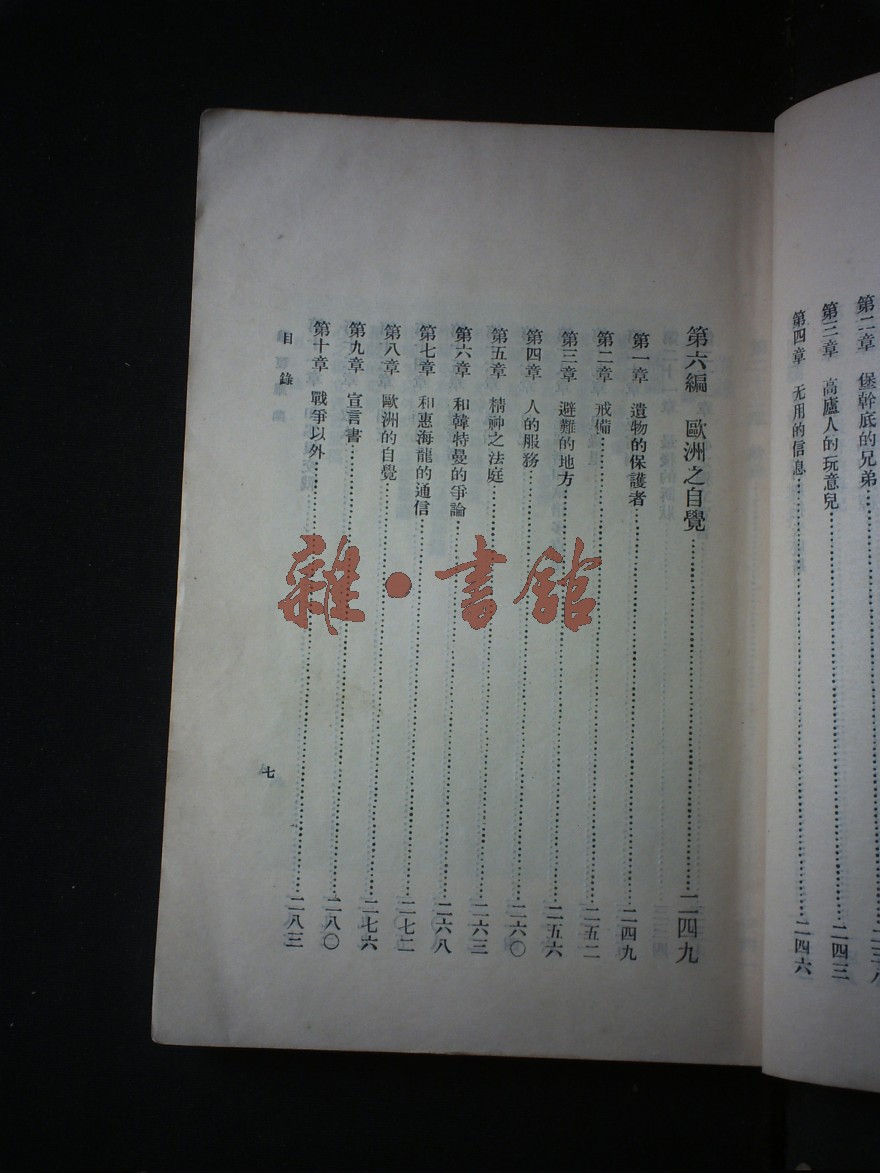 第二章 堡幹底的兄弟
第三章 高廬人的玩意兒……二四三
第四章 无用的信息……二四六
第六編 歐洲之自覺……二四九
第一章 遺物的保護者……二四九
第二章 戒備……二五二
第三章 避難的地方……二五六
第四章 人的服務……二六〇
第五章 精神之法庭……二六三
第六章 和韓特曼的爭論……二六八
第七章 和惠海龍的通信……二七二
第八章 歐洲的自覺……二七六
第九章 宣言書……二八〇
第十章 戰爭以外……二八三
目錄
七
雜·書館